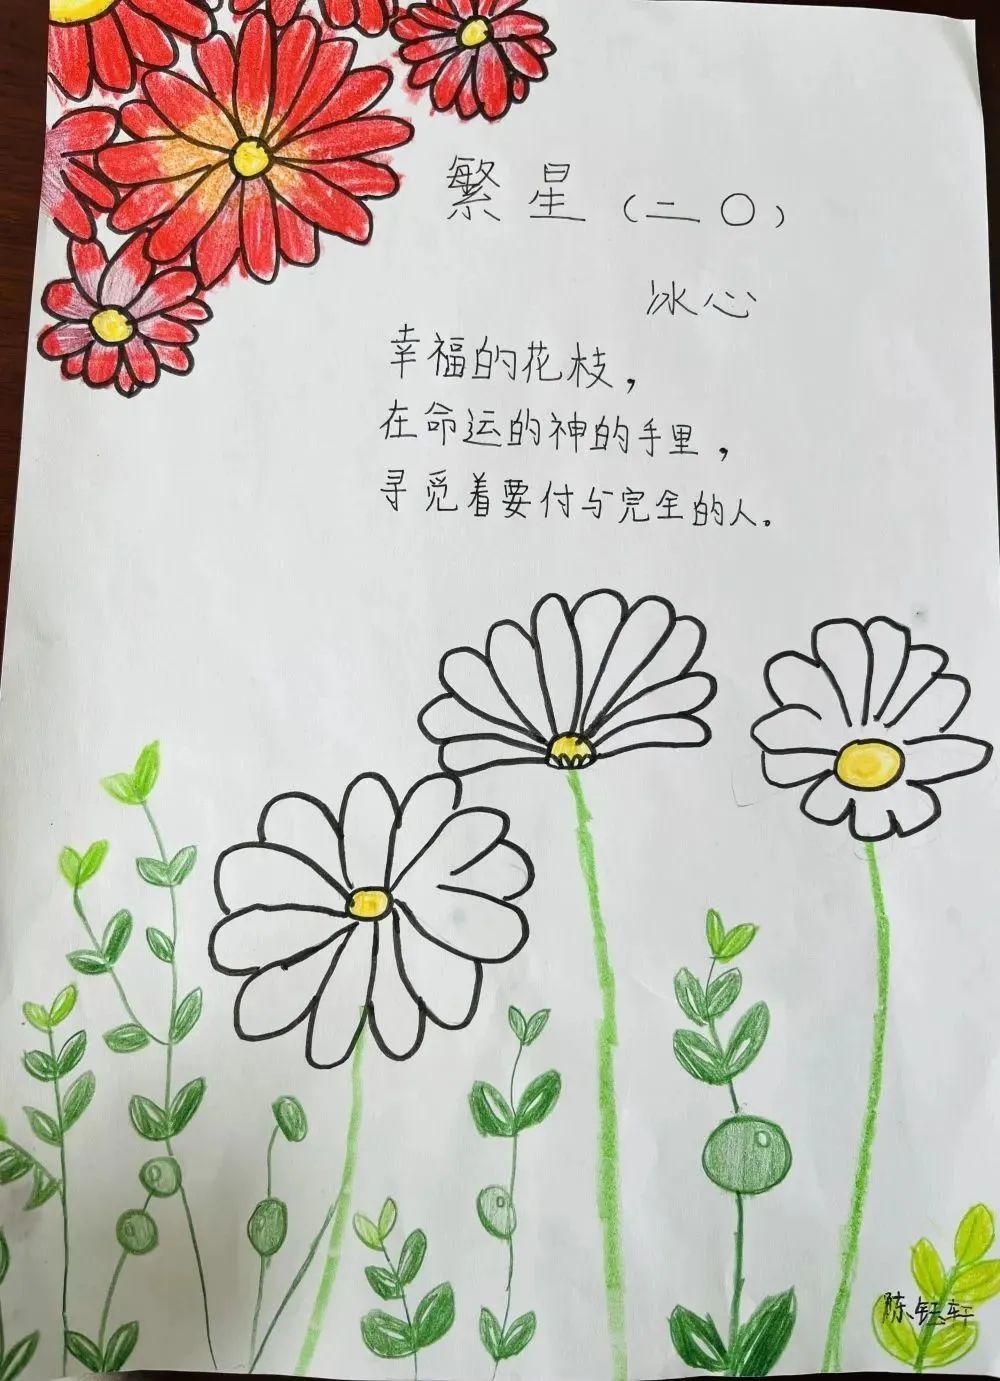 繁星（二〇）
冰心
幸福的花枝，
在命运的神的手里，
寻觅着要付与完全的人。
陈钰轩